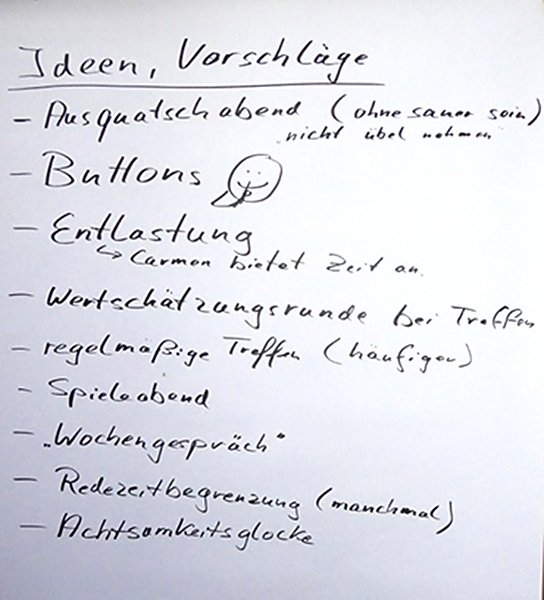 Ideen, Vorschläge
- Ausquatschabend (ohne sauer sein)
nicht übel nehmen
- Buttons
- Entlastung
↳ Carmen bietet Zeit an.
- Wertschätzungsrunde bei Treffen
- regelmäßige Treffen (häufiger)
- Spieleabend
- „Wochengespräch"
- Redezeitbegrenzung (manchmal)
- Achtsamkeitsglocke